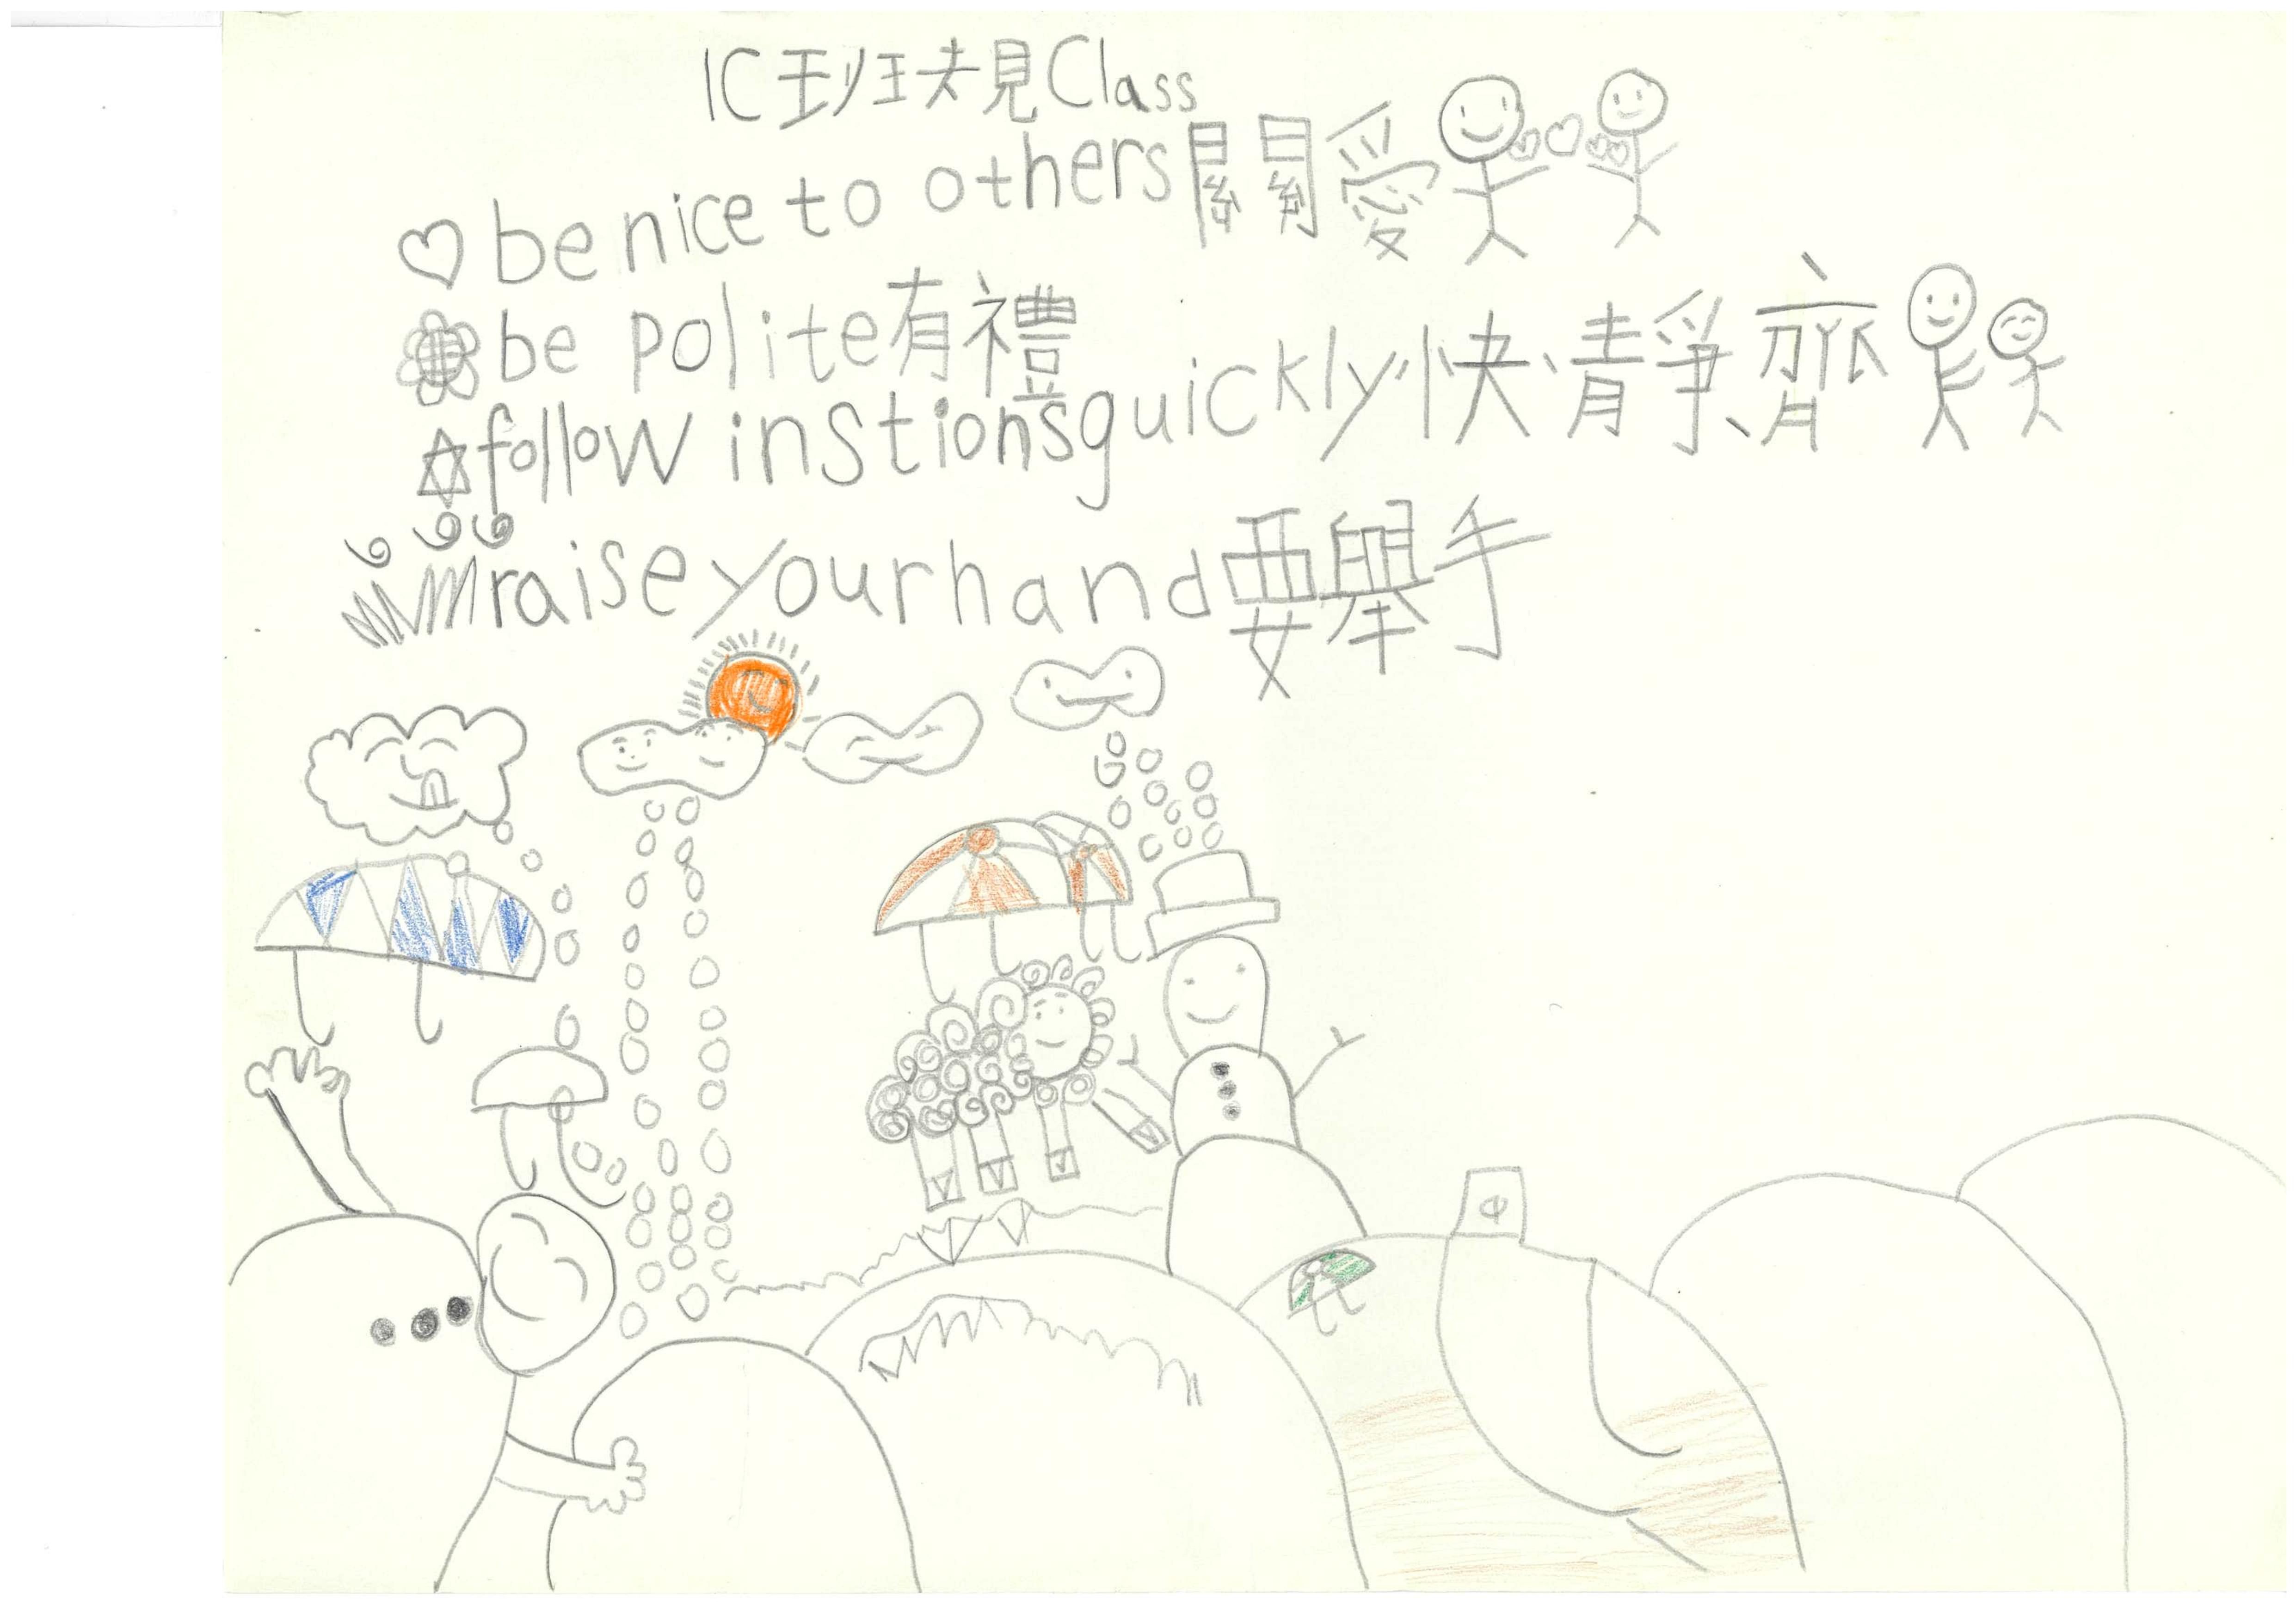 1C 班規 Class
be nice to others 關愛
be polite 有禮
follow instions quickly 快、靜、齊
raise your hand 要舉手